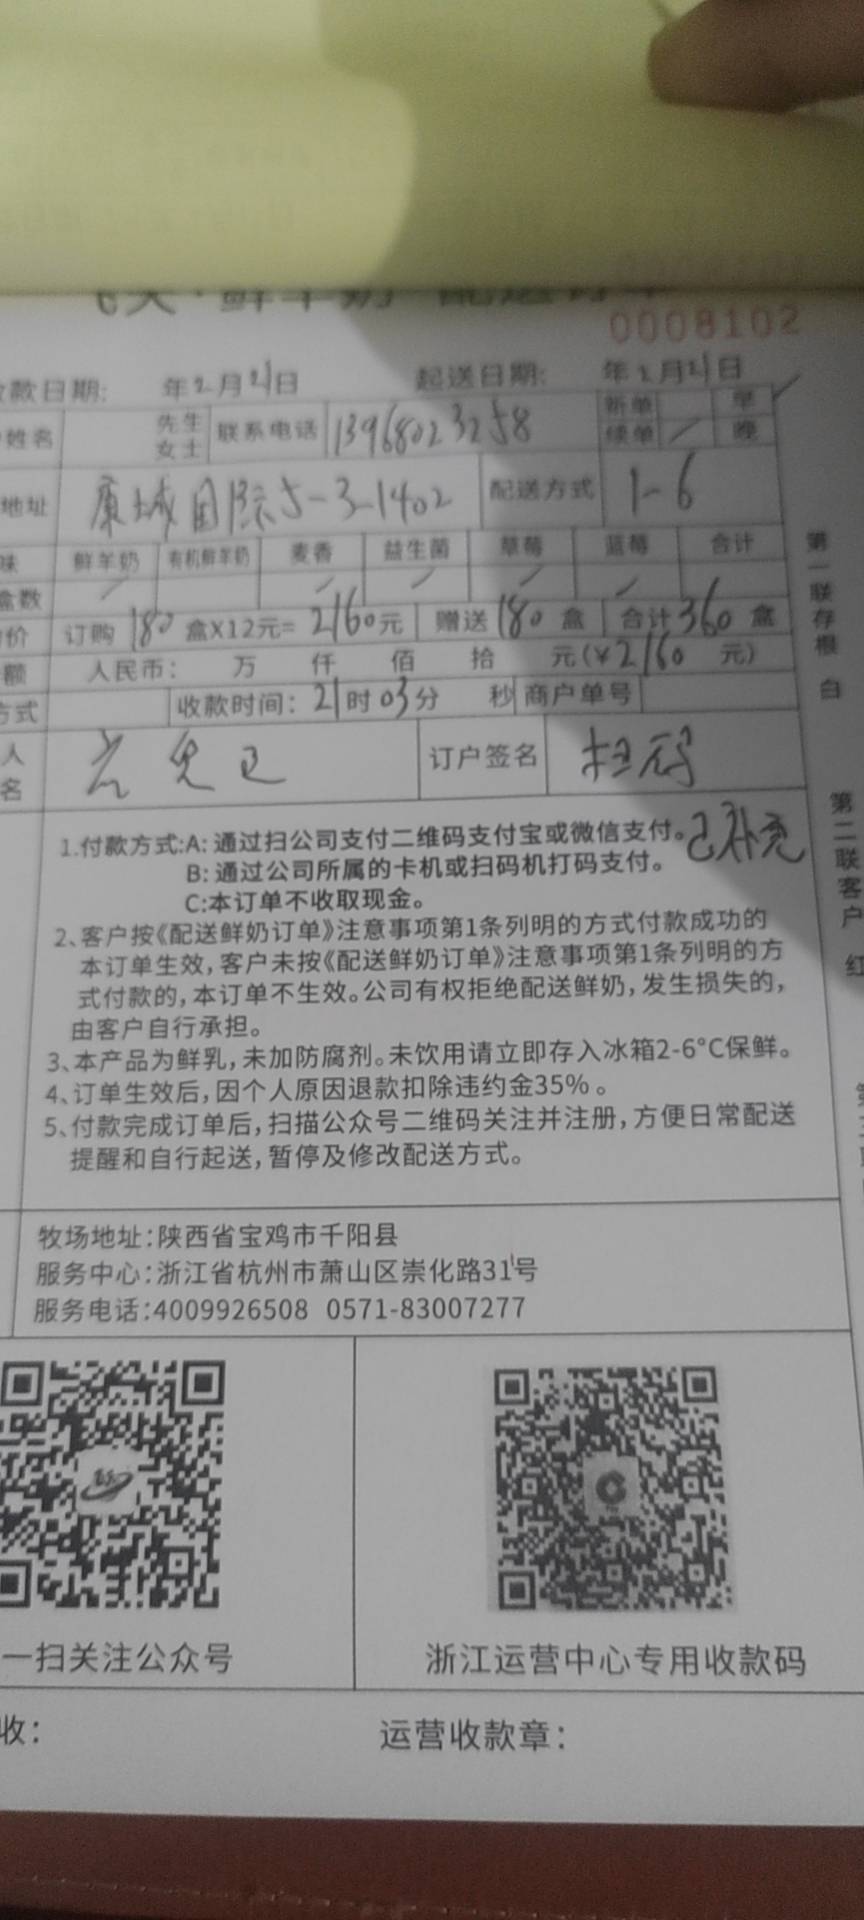 飞天·鲜羊奶 配送订单
0008102
收款日期: 年2月21日 起送日期: 年2月21日
姓名 先生 女士 联系电话 13968023258 新单 早
续单 晚
地址 康城国际5-3-1402 配送方式 1-6
味 鲜羊奶 有机鲜羊奶 麦香 益生菌 草莓 蓝莓 合计
盒数
价 订购180盒X12元=2160元 赠送180盒 合计360盒
额 人民币: 万 仟 佰 拾 元(¥2160元)
方式 收款时间: 21时03分 秒 商户单号
人
名 订户签名 扫码
已补充
1.付款方式:A: 通过扫公司支付二维码支付宝或微信支付。
B: 通过公司所属的卡机或扫码机打码支付。
C:本订单不收取现金。
2、客户按《配送鲜奶订单》注意事项第1条列明的方式付款成功的
本订单生效,客户未按《配送鲜奶订单》注意事项第1条列明的方
式付款的,本订单不生效。公司有权拒绝配送鲜奶,发生损失的,
由客户自行承担。
3、本产品为鲜乳,未加防腐剂。未饮用请立即存入冰箱2-6°C保鲜。
4、订单生效后,因个人原因退款扣除违约金35%。
5、付款完成订单后,扫描公众号二维码关注并注册,方便日常配送
提醒和自行起送,暂停及修改配送方式。
牧场地址:陕西省宝鸡市千阳县
服务中心:浙江省杭州市萧山区崇化路31号
服务电话:4009926508 0571-83007277
一扫关注公众号 浙江运营中心专用收款码
收: 运营收款章:
第一联存根 白
第二联客户 红